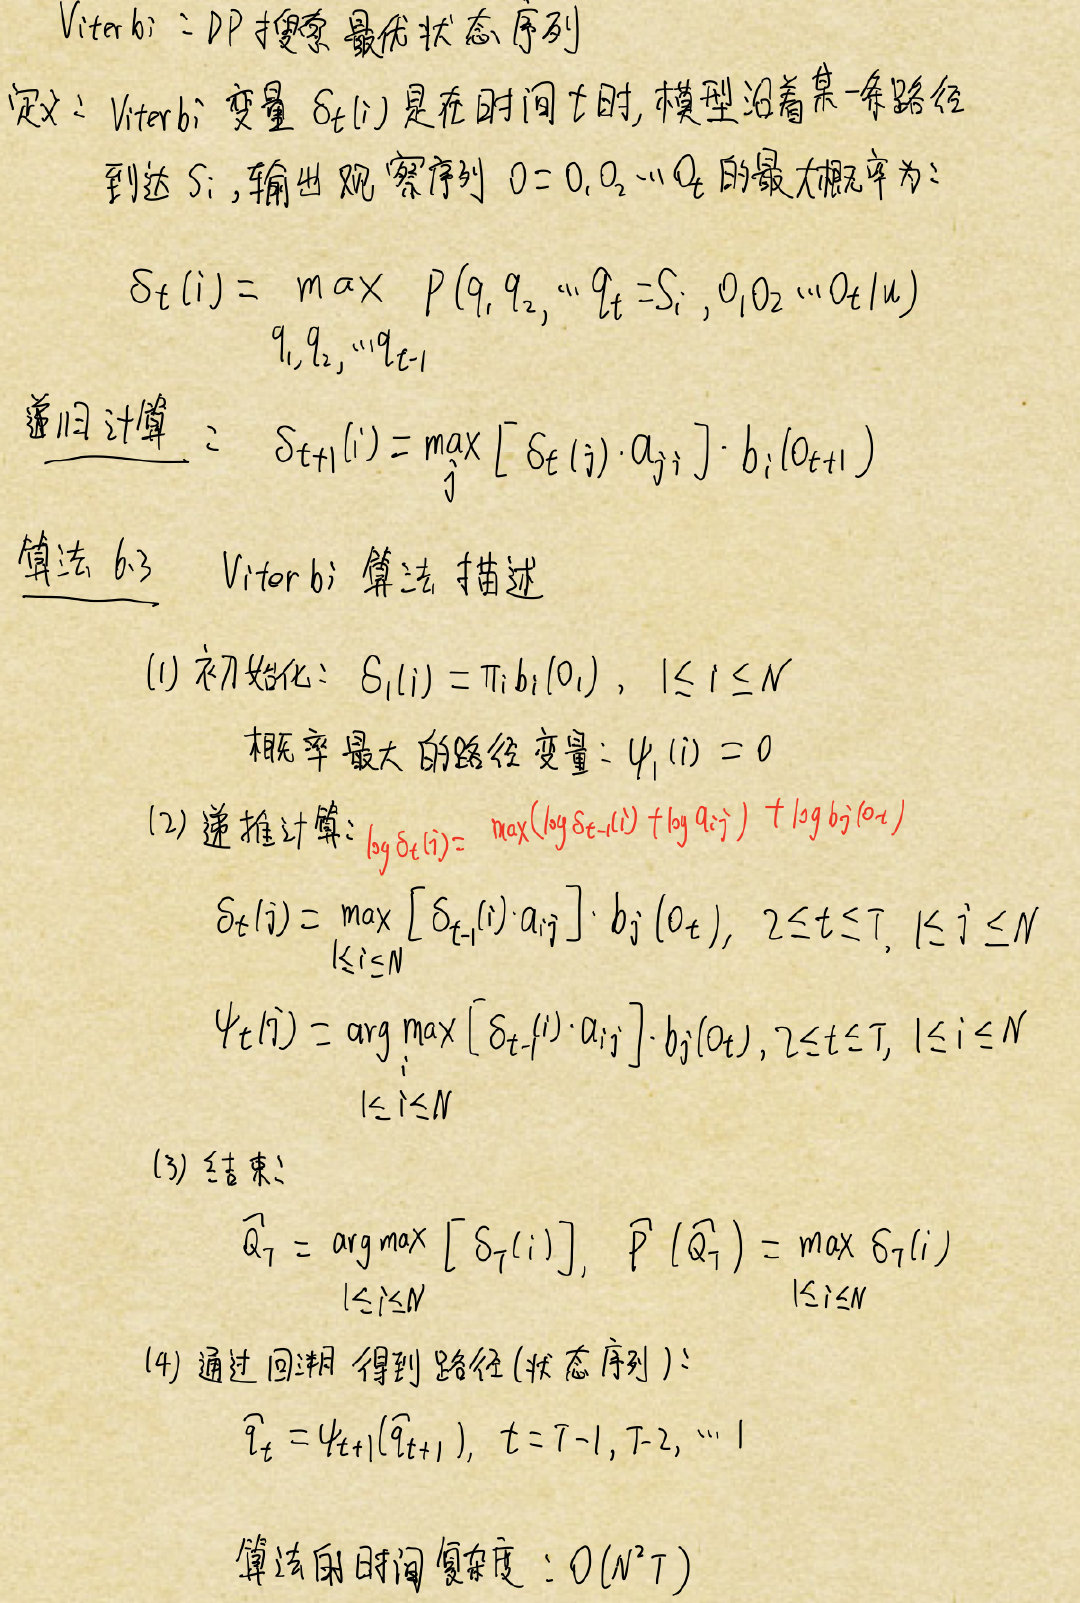 Viterbi：DP搜索最优状态序列
定义：Viterbi 变量 δt(i) 是在时间 t 时, 模型沿着某一条路径
到达 Si , 输出观察序列 O=O1O2…Ot 的最大概率为：
δt(i) = max P(q1 q2, … qt=Si , O1O2…Ot/u)
q1,q2,…qt-1
递归计算： δt+1(i) = max [δt(j)·aji]·bi(Ot+1)
j
算法 6.3 Viterbi 算法描述
(1) 初始化： δ1(i) = πibi(O1), 1≤i≤N
概率最大的路径变量：ψ1(i) = 0
(2) 递推计算：log δt(i) = max(log δt-1(i) + log aij) + log bj(Ot)
δt(j) = max [δt-1(i)·aij]·bj(Ot), 2≤t≤T, 1≤j≤N
1≤i≤N
ψt(j) = arg max [δt-1(i)·aij]·bj(Ot), 2≤t≤T, 1≤i≤N
i
1≤i≤N
(3) 结束：
Q̂T = argmax [δT(i)], P̂(Q̂T) = max δT(i)
1≤i≤N 1≤i≤N
(4) 通过回溯得到路径(状态序列)：
q̂t = ψt+1(q̂t+1), t = T-1, T-2, … 1
算法的时间复杂度：O(N²T)